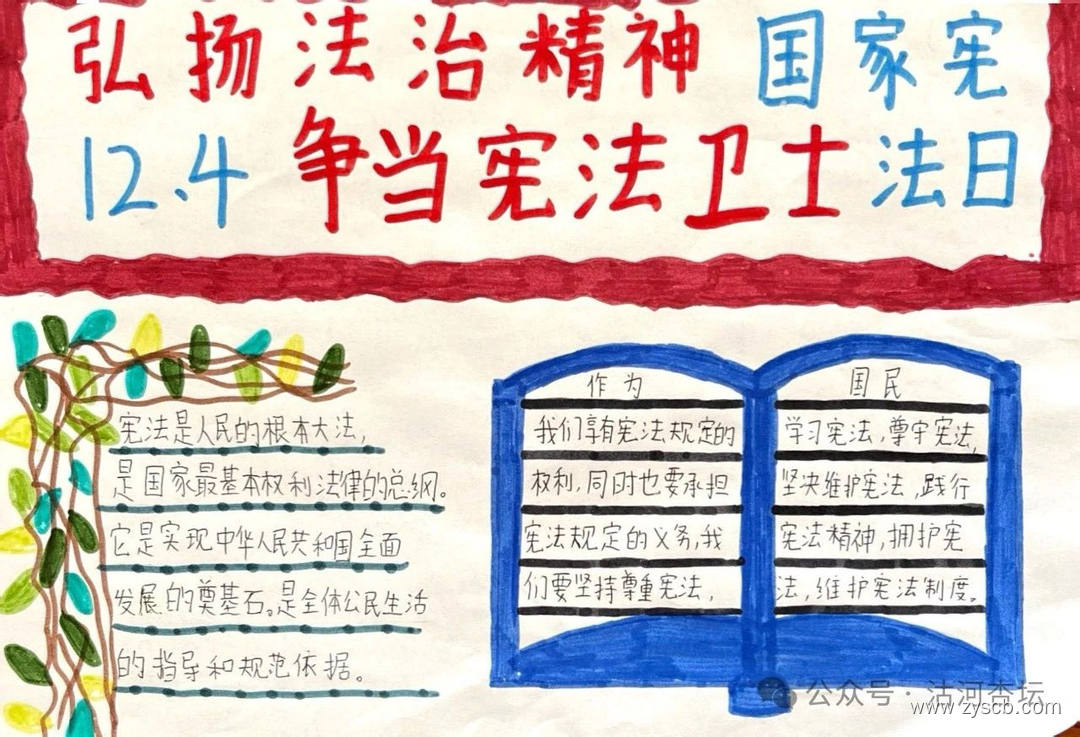 弘扬法治精神 国家宪
12.4 争当宪法卫士 法日
宪法是人民的根本大法，
是国家最基本权利法律的总纲。
它是实现中华人民共和国全面
发展的奠基石。是全体公民生活
的指导和规范依据。
作为
我们享有宪法规定的
权利，同时也要承担
宪法规定的义务，我
们要坚持尊重宪法，
国民
学习宪法，尊守宪法，
坚决维护宪法，践行
宪法精神，拥护宪
法，维护宪法制度。
公众号·沽河杏坛
www.zyscb.com